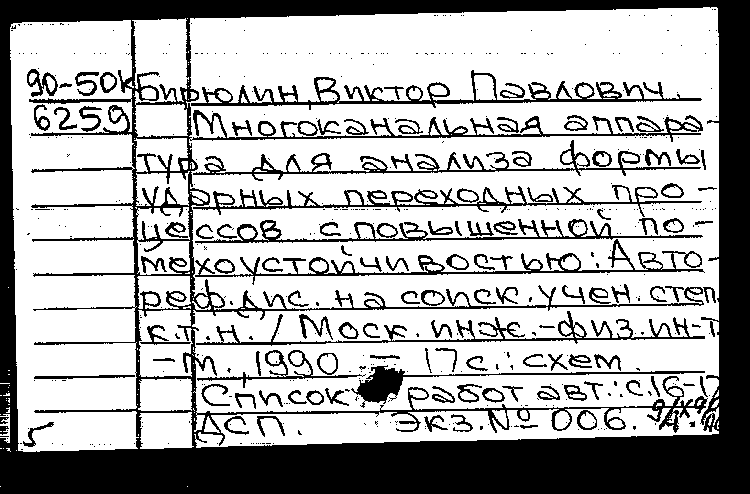 90-50к Бирюлин, Виктор Павлович.
6259 Многоканальная аппара-
тура для анализа формы
ударных переходных про-
цессов с повышенной по-
мехоустойчивостью: Авто-
реф. дис. на соиск. учен. степ.
к.т.н. / Моск. инж.-физ. ин-т.
- М., 1990 - 17 с.: схем.
Список работ авт.: с. 16-17
5 ДСП. Экз. № 006.